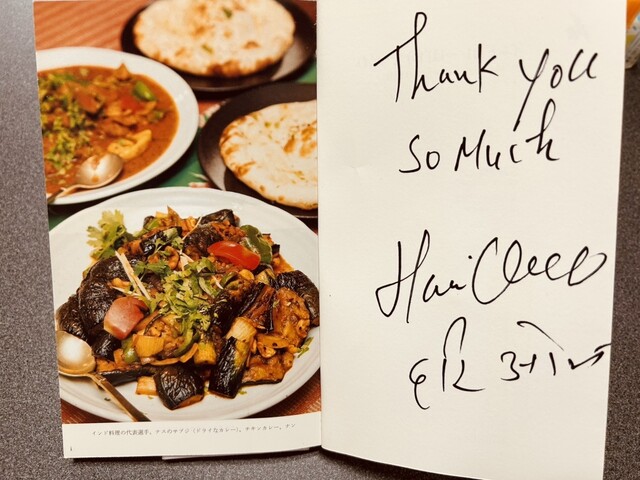 インド料理の代表選手。ナスのサブジ（ドライなカレー）、チキンカレー、ナン
Thank you
so Much
Hari
हरि ओम